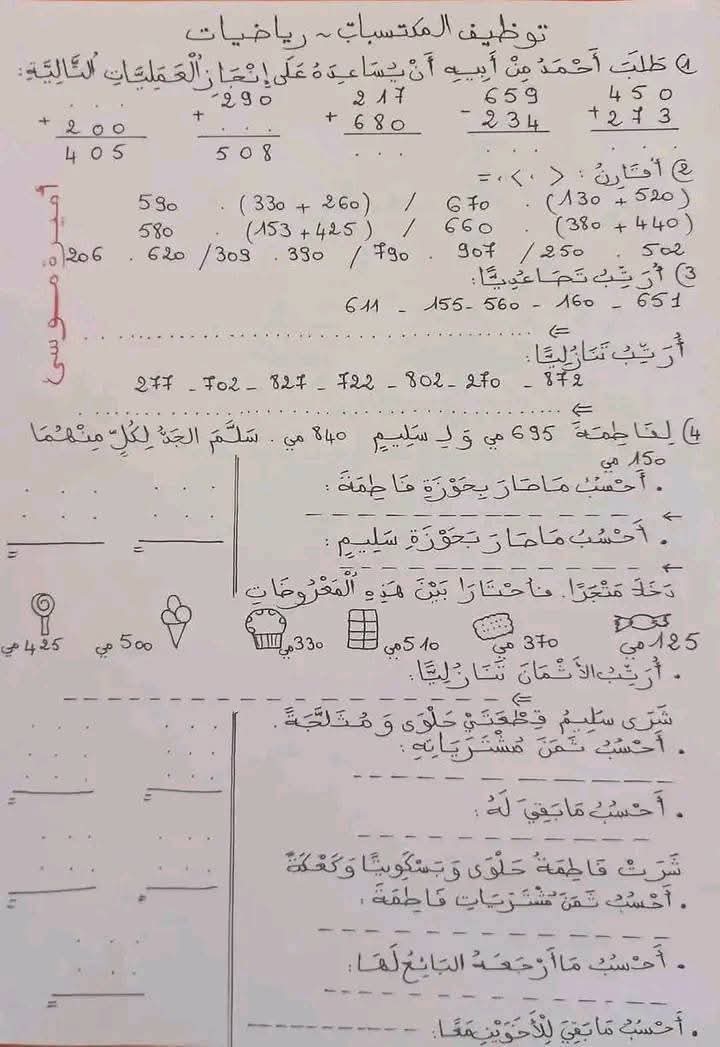 توظيف المكتسبات ~ رياضيات
1) طَلَبَ أَحْمَدُ مِنْ أَبِيهِ أَنْ يُسَاعِدَهُ عَلَى إِنْجَازِ الْعَمَلِيَّاتِ التَّالِيَّةِ:
. . . 290 217 659 450
+ 200 + . . . + 680 - 234 + 273
405 508 . . . . . . . . .
2) أُقَارِنُ: < ، > ، =
(130 + 520) . 670 / (330 + 260) . 590
(380 + 440) . 660 / (153 + 425) . 580
502 . 250 / 907 . 790 / 390 . 309 / 620 . 206
3) أُرَتِّبُ تَصَاعُدِيًّا:
611 - 155 - 560 - 160 - 651
⇐ . . . . . . . . . . . . . . . . . . . .
أُرَتِّبُ تَنَازُلِيًّا:
277 - 702 - 827 - 722 - 802 - 270 - 872
⇐ . . . . . . . . . . . . . . . . . . . .
4) لِفَاطِمَةَ 695 مي وَ لِـ سَلِيمٍ 840 مي . سَلَّمَ الجَدُّ لِكُلٍّ مِنْهُمَا
150 مي
. أَحْسُبُ مَا صَارَ بِحَوْزَةِ فَاطِمَةَ :
← _ _ _ _ _ _ _ _ _ _
. أَحْسُبُ مَا صَارَ بَحَوْزَة سَلِيمٍ :
← _ _ _ _ _ _ _ _ _ _
دَخَلَا مَتْجَرًا. فاحْتَارَا بَيْنَ هَذِهِ الْمَعْرُوضَاتِ
125 مي 370 مي 510 مي 330 مي 500 مي 425 مي
. أُرَتِّبُ الأَثْمَانَ تَنَازُلِيًّا:
⇐ _ _ _ _ _ _ _ _ _ _
شَرَى سَلِيمُ قِطْعَتَيْ حَلْوَى وَ مُثَلَّجَةً.
. أَحْسُبُ ثَمَنَ مُشْتَرَيَاتِهِ:
_ _ _ _ _ _ _ _ _ _
. أَحْسُبُ مَا بَقِيَ لَهُ :
_ _ _ _ _ _ _ _ _ _
شَرَتْ فَاطِمَةُ حَلْوَى وَ بَسْكَوِيتًا وَ كَعْكَةً
. أَحْسُبُ ثَمَنَ مُشْتَرَيَاتِ فَاطِمَةَ :
_ _ _ _ _ _ _ _ _ _
. أَحْسُبُ مَا أَرْجَعَهُ البَائِعُ لَهَا:
_ _ _ _ _ _ _ _ _ _
. أَحْسُبُ مَا بَقِيَ لِلْأَخَوَيْنِ مَعًا: _ _ _ _ _ _